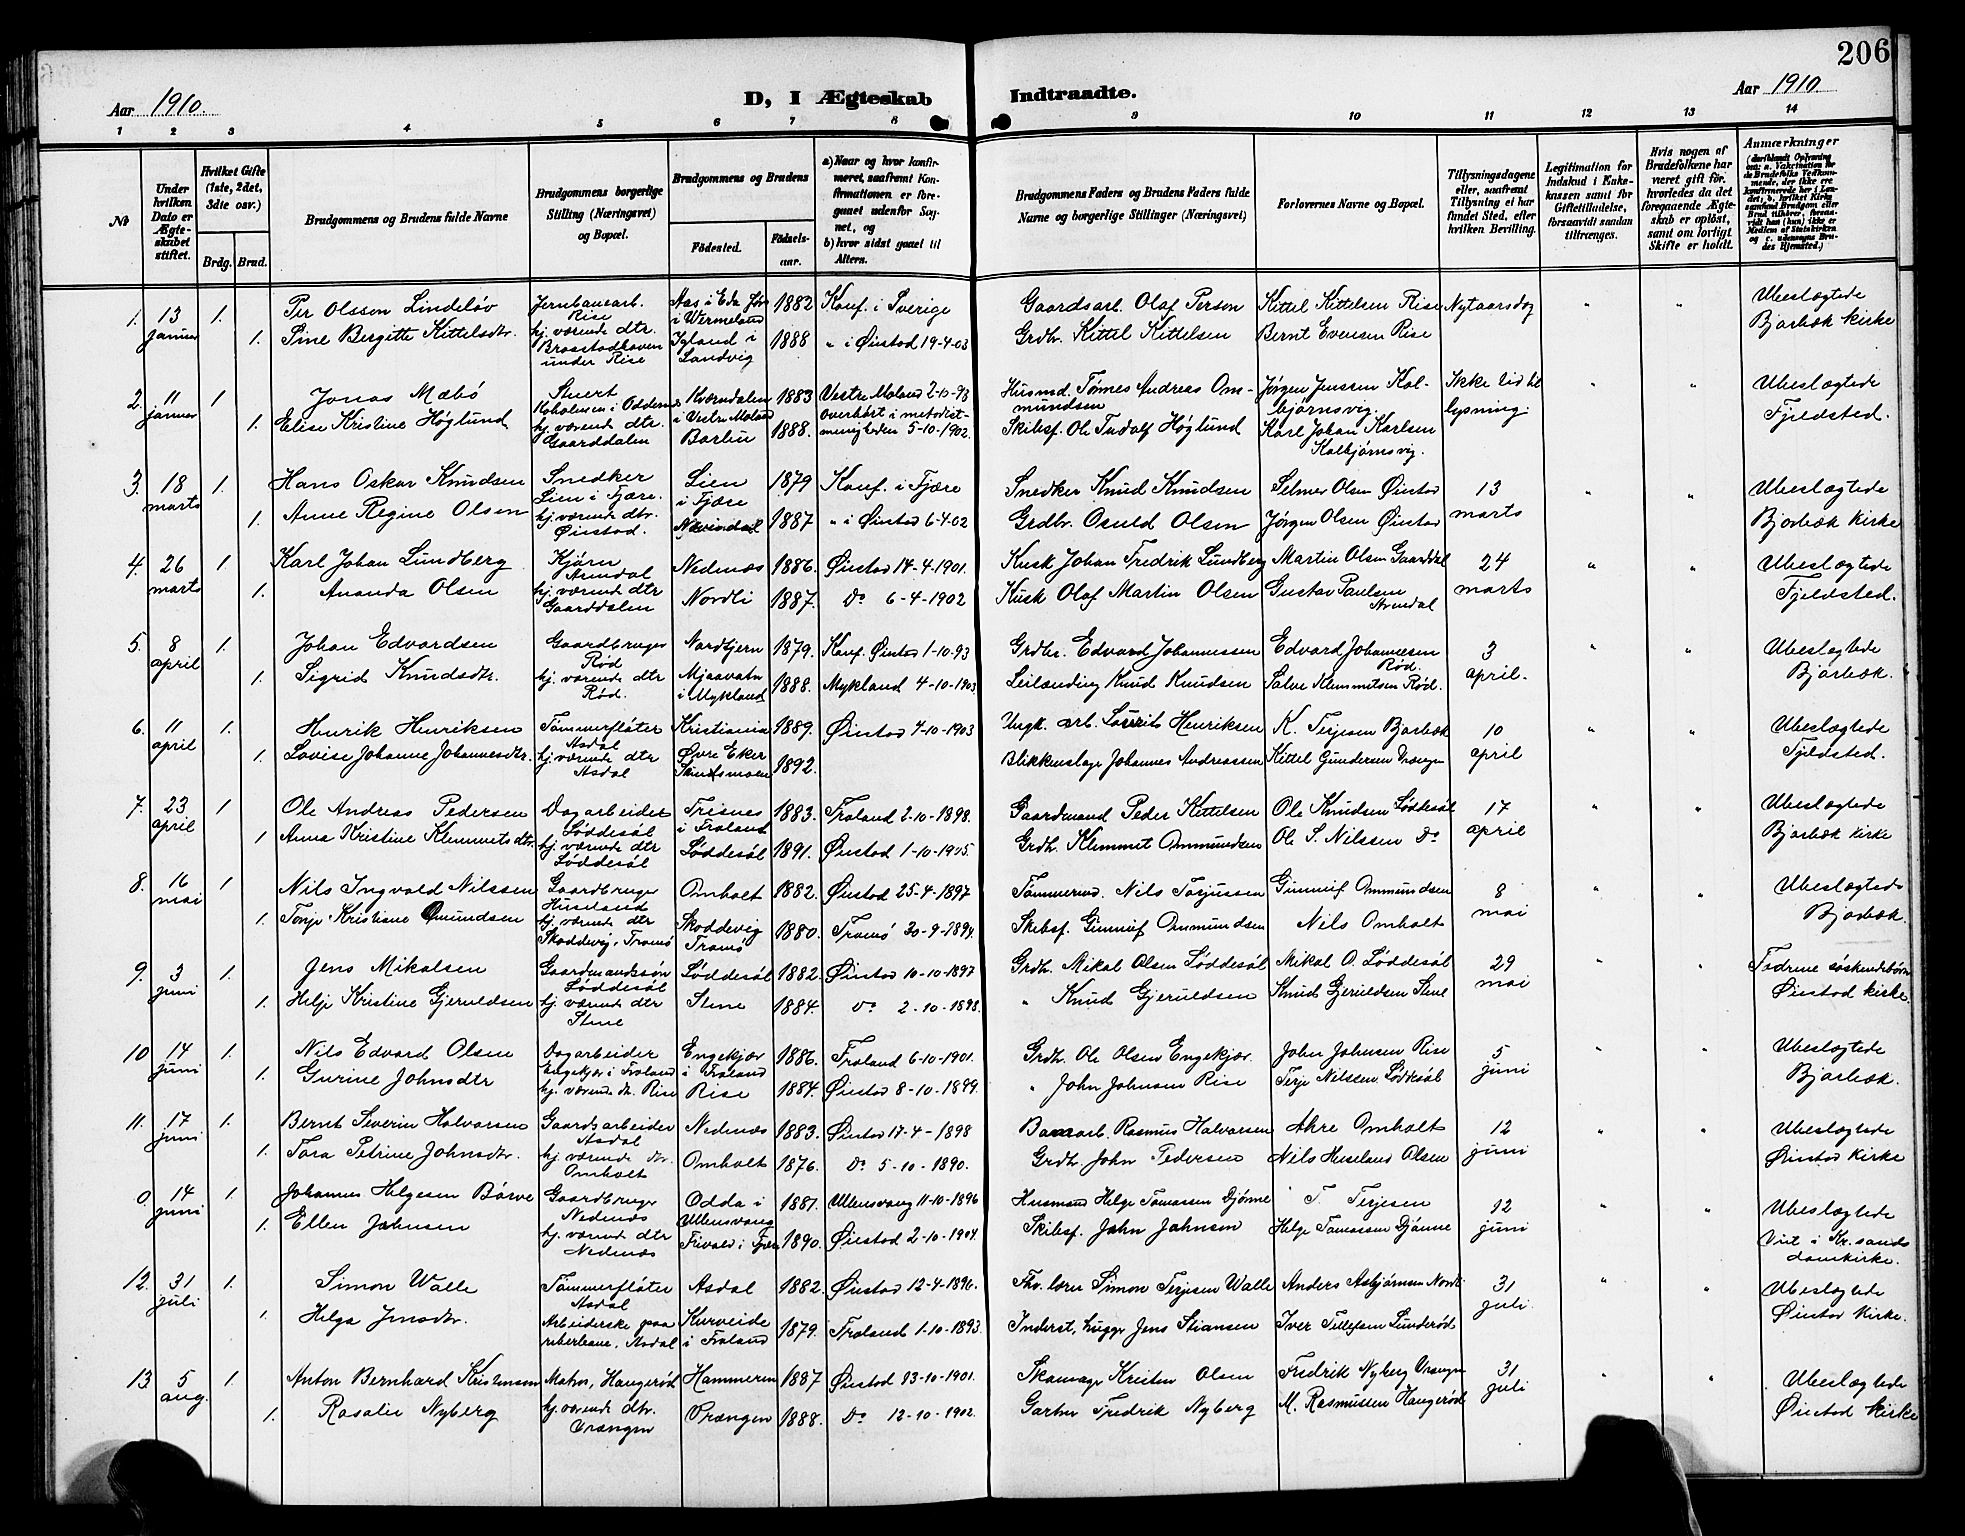 206
Aar 1910.
D, I Ægteskab Indtraadte.
Aar 1910.
1 2 3 4 5 6 7 8 9 10 11 12 13 14
No
Under hvilken Dato er Ægteskabet stiftet.
Hvilket Gifte (1ste, 2det, 3dte osv.)
Brdg. Brud.
Brudgommens og Brudens fulde Navne
Brudgommens borgerlige Stilling (Næringsvei) og Bopæl.
Brudgommens og Brudens
Födested.
Födselsaar.
a) Naar og hvor konfirmeret, saafremt Konfirmationen er foregaaet udenfor Sognet, og
b) hvor sidst gaaet til Altern.
Brudgommens Faders og Brudens Faders fulde Navne og borgerlige Stillinger (Næringsvei)
Forlovernes Navne og Bopæl.
Tillysningsdagene eller, saafremt Tillysning ei har fundet Sted, efter hvilken Bevilling.
Legitimation for Indskud i Enkekassen samt for Giftetilladelse, forsaavidt saadan tiltrænges.
Hvis nogen af Brudefolkene har været gift för, hvorledes da det foregaaende Ægteskab er oplöst, samt om lovligt Skifte er holdt.
Anmærkninger
1. 13 januar 1. Per Olsson Lindelöv Jernbanearb. Rise Aas i Eda i Wermeland 1882 Konf. i Sverige Gaardsarb. Olaf Person Kittel Kittelsen Rise Nytaarsdag " " Ubeslægtede
1. Sine Bergitte Kittelsdtr. hj. værende dtr. under Rise Igland i Landvig 1888 " i Øiestad 19-4-03 Grdbr. Kittel Kittelsen Bernt Evensen Rise Bjorbæk kirke
2. 11 januar 1 Jonas Mæbö Kværndalen i Vestre Moland 1883 Vestre Moland 2-10-98 Husmd. Tönnes Andreas Ommundsen Jørgen Jenssen Kolbjörnsvig Ikke tid til lysning. " " Ubeslægtede
1. Elise Kristine Höglund hj. værende dtr. Gaarddalen Barlin 1888. overhört i metodistmenigheden 5-10-1902. Skibsf. Ole Höglund Karl Johan Karlsen Kolbjörnsvig. Fjeldsted.
3. 18 marts 1. Hans Oskar Knudsen Snedker Lien i Fjære. Lien i Fjære 1879 Konf. i Fjære Snedker Knud Knudsen Selmer Olsen Øiestad 13 marts " " Ubeslægtede
1. Anne Regine Olsen hj. værende dtr. Øiestad. 1887 " i Øiestad 6-4-02 Grdbr. Osuld Olsen Jörgen Olsen Øiestad Bjorbæk kirke
4. 26 marts 1. Karl Johan Lundberg Arendal Nedenæs 1886. Øiestad 14-4-1901. Kusk Johan Fredrik Lundberg Martin Olsen Gaarddal 24 marts " " Ubeslægtede
1. Ananda Olsen hj. værende dtr Gaarddalen Nordli 1887. Do 6-4-1902 Kusk Olaf Martin Olsen Gustav Paulsen Arendal Fjeldsted.
5. 8 april 1. Johan Edvardsen Gaardbruger Röd Nordtjern 1879. Konf. Øiestad 1-10-93 Grdbr. Edvard Johannessen Edvard Johannessen Röd. 3 april. " " Ubeslægtede
1. Sigrid Knudsdtr. hj. værende dtr Röd. Mjaavatn i Mykland 1888. Mykland 4-10-1903. Leilænding Knud Knudsen Salve Klemmetsen Röd. Bjorbæk.
6. 11 april 1. Henrik Henriksen Tömmerflöter Asdal Kristiania 1889. Øiestad 4-10-1903 arb. Henriksen K. Terjesen Bjorbæk 10 april " " Ubeslægtede
1. Lovise Johanne Johannesdtr. hj. værende dtr Asdal Övre Eker 1892. Blikkenslager Johannes Andreassen Kittel Gundersen Vrængen Fjeldsted.
7. 23 april 1 Ole Andreas Pedersen Dagarbeider Löddesöl i Froland 1883. Froland 2-10-1898. Gaardmand Peder Kittelsen Ole Knudsen Löddesöl 17 april " " Ubeslægtede
1 Anna Kristine Klemmetsdtr. hj. værende dtr Löddesöl Löddesöl 1891. Øiestad 1-10-1905. Grdbr. Klemmet Ommundsen Ole S. Nilssen Do Bjorbæk kirke
8. 16 mai 1 Nils Ingvald Nilssen Gaardbruger Huseland Omholt 1882. Øiestad 25-4-1897 Tömmermd. Nils Torjussen Gunnuf Ommundsen 8 mai " " Ubeslægtede
1. Terje Kristiane Omundsen hj. værende dtr Skoddevig, Tromö Skoddevig Tromö 1880. Tromö 30-9-1894. Skibsf. Gunnuf Ommundsen Nils Omholt Bjorbæk.
9. 3 juni 1. Jens Mikalsen Gaardmandssön Löddesöl Löddesöl 1882. Øiestad 10-10-1897 Grdbr. Mikal Olsen Löddesöl Mikal O. Löddesöl 29 mai " " Fedrene söskendebörn
1. Helje Kristine Gjeruldsen hj. værende dtr Stene Stene 1884. Do 2-10-1898. " Knud Gjeruldsen Knud Gjeruldsen Stene Øiestad kirke.
10 14 juni 1. Nils Edvard Olsen Dagarbeider Engekjær i Froland Engekjær i Froland 1886. Froland 6-10-1901. Grdbr. Ole Olsen Engekjær. John Johnsen Rise 5 juni " " Ubeslægtede
1. Gurine Johnsdtr hj. værende dtr. Rise Rise 1884. Øiestad 8-10-1899. " John Johnsen Rise Terje Nilssen Löddesöl Bjorbæk.
11. 17 juni 1. Bernt Severin Halvorsen Gaardsarbeider Asdal Nedenæs 1883. Øiestad 17-4-1898 Rasmus Halvorsen Akre Omholt 12 juni " " Ubeslægtede
1. Tora Petrine Johnsdtr. hj. værende dtr. Omholt Omholt 1876. Do 5-10-1890. Grdbr. John Pedersen Nils Huseland Olsen Øiestad kirke
0. 14 juni 1. Johannes Helgesen Börve Gaardbruger Nedenæs Odda i Ullensvang 1881. Ullensvang 11-10-1896 Husmand Helge Tomassen Djönne T. Terjesen 12 juni " " Ubeslægtede
1. Ellen Johnsen hj. værende dtr Nedenæs i Fjære 1890. Øiestad 2-10-1904. Skibsf. John Johnsen Helge Tomassen Djönne Viet i Kr.sands domkirke.
12. 31 juli 1. Simon Walle Tömmerflöter Asdal Asdal 1882 Øiestad 12-4-1896. Simon Terjesen Walle Anders Asbjörnsen Nordli 31 juli. " " Ubeslægtede
1. Helga Jensdtr. Arbeiderske paa reberbane, Asdal Kurveide i Froland 1879. Froland 1-10-1893. Inderst, hugger Jens Stiansen Iver Tellefsen Lunderöd Øiestad kirke.
13. 5 aug. 1. Anton Bernhard Kristensen Matr., Haugeröd Hammeren 1887 Øiestad 13-10-1901. Skomager Kristen Olsen Fredrik Nyberg Vrængen 31 juli " " Ubeslægtede
1. Rosalie Nyberg hj. værende dtr. Vrængen Vrængen 1888. Do 12-10-1902. Gartner Fredrik Nyberg M. Rasmussen Haugeröd Øiestad kirke